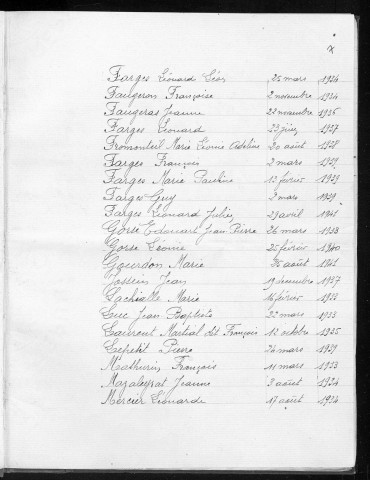 Farges Léonard Léon 25 mars 1934
Faugeron Françoise 2 novembre 1934
Faugeras Jeanne 22 novembre 1936
Farges Léonard 1937
Fromonteil Marie Léonie Adeline 20 août 1938
Farges François 2 mars 1939
Farges Marie Pauline 13 février 1939
Farges Guy 2 mars 1939
Farges Léonard Julien 29 avril 1941
Gorse Edouart Jean Pierre 26 mars 1933
Gorse Léonie 25 février 1940
Gourdon Marie 25 août 1941
Jossein Jean 19 décembre 1937
Lachialle Marie 16 février 1933
Luc Jean Baptiste 22 mars 1933
Laurent Martial dit François 12 octobre 1935
Lepetit Pierre 26 mars 1939
Mathurin François 11 mars 1933
Mazaleyrat Jeanne 3 août 1934
Mercier Léonarde 17 août 1934